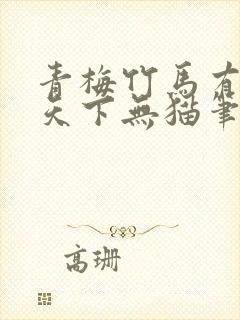 青梅竹馬有
天下無猫筆
高珊